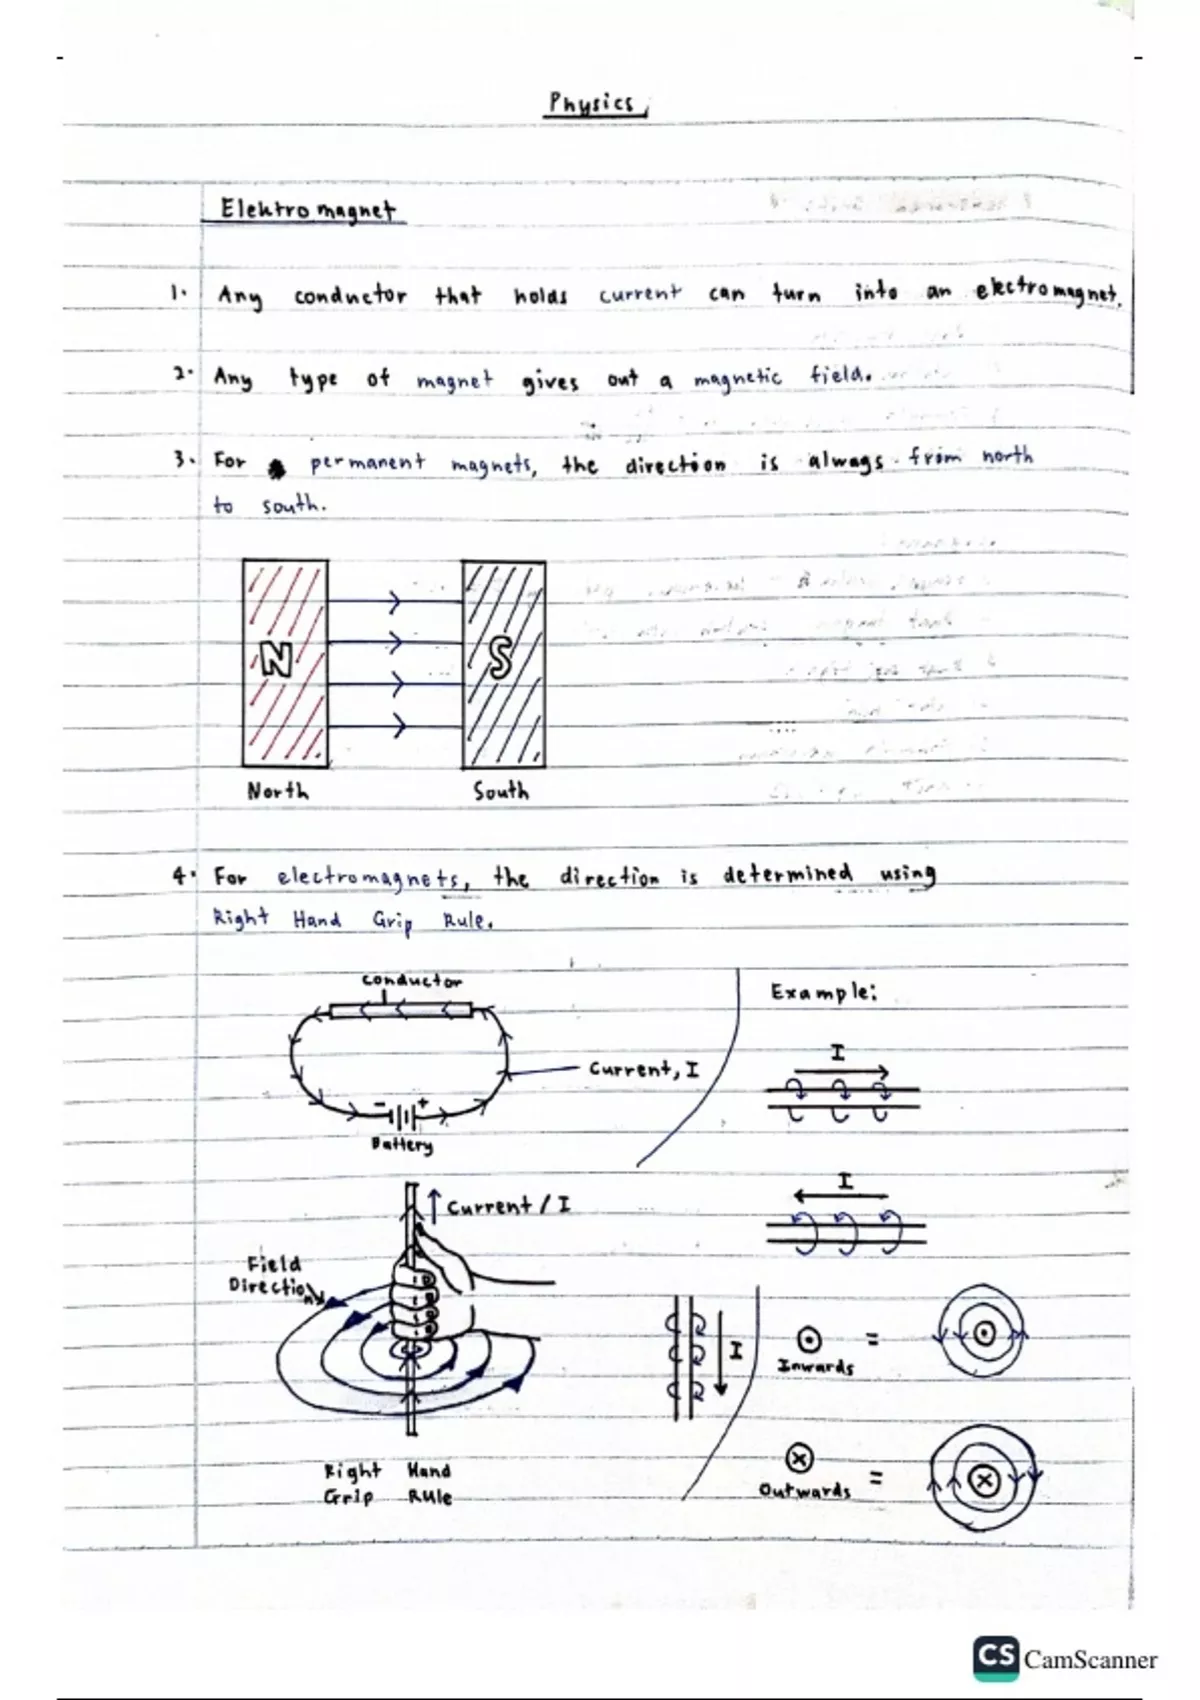 Physics
Elektromagnet
1. Any conductor that holds current can turn into an electromagnet.
2. Any type of magnet gives out a magnetic field.
3. For permanent magnets, the direction is always from north
to south.
N S
North South
4. For electromagnets, the direction is determined using
Right Hand Grip Rule.
conductor
Current, I
- +
Battery
Current / I
Field
Direction
Right Hand
Grip Rule
Example:
I
I
I
Inwards =
Outwards =
CS CamScanner